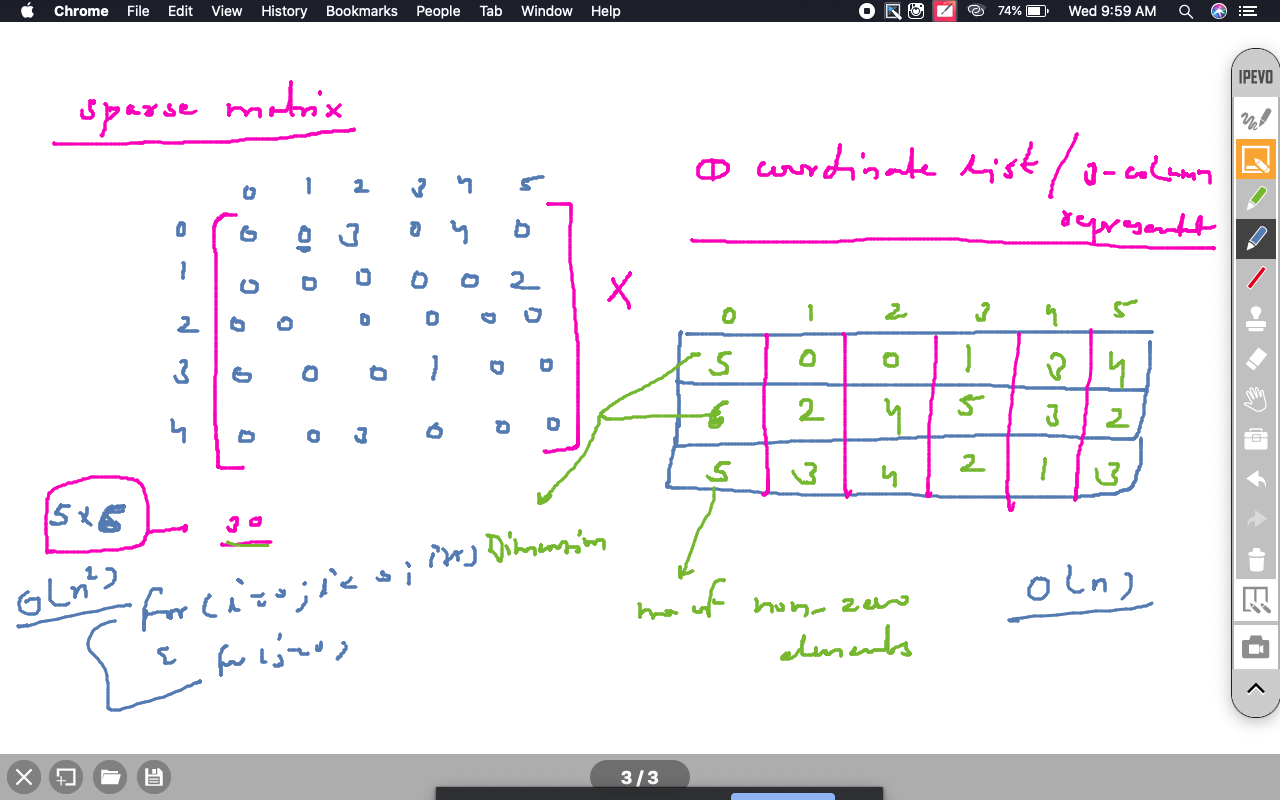 Chrome File Edit View History Bookmarks People Tab Window Help
74% Wed 9:59 AM
IPEVO
sparse matrix
0 1 2 3 4 5
0 0 0 3 0 4 0
1 0 0 0 0 0 2
2 0 0 0 0 0 0
3 0 0 0 1 0 0
4 0 0 3 0 0 0
X
5 x 6
30
O(n²)
for (i=0; i<5; i++)
{ for (j=0;
① coordinate list / 3-column
represent
0 1 2 3 4 5
5 0 0 1 3 4
6 2 4 5 3 2
5 3 4 2 1 3
Dimension
no of non-zero
elements
O(n)
3 / 3